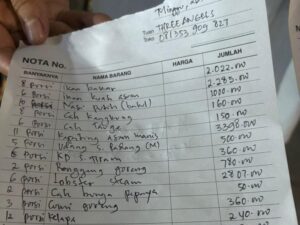 Minggu, 20
Tuan THREE ANGELS
Toko 081353 909 827
NOTA No.
BANYAKNYA NAMA BARANG HARGA JUMLAH
8 porsi Ikan bakar 2.022.000
6 porsi Ikan kuah asam 2.283.000
10 porsi Nasi putih (bakul) 1000.000
8 porsi Cah kangkung 160.000
6 porsi Cah 150.000
11 porsi Kepiting asam manis 3398.000
5 porsi Udang S. Padang (M) 500.000
6 porsi KP S. Tiram 360.000
2 porsi goreng 780.000
6 porsi Lobster 2807.000
2 porsi Cah bunga pepaya 50.000
3 porsi Cumi goreng 360.000
12 porsi Kelapa 240.000